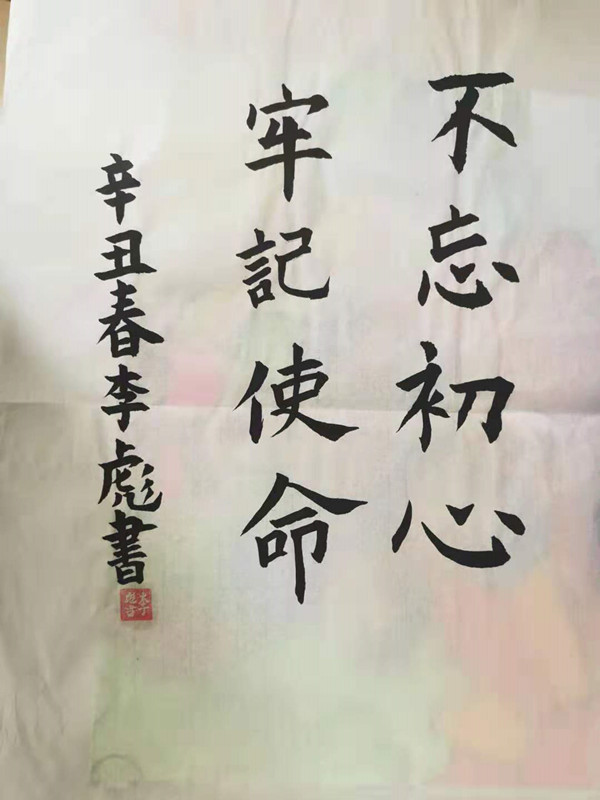 不忘初心
牢記使命
辛丑春李彪書